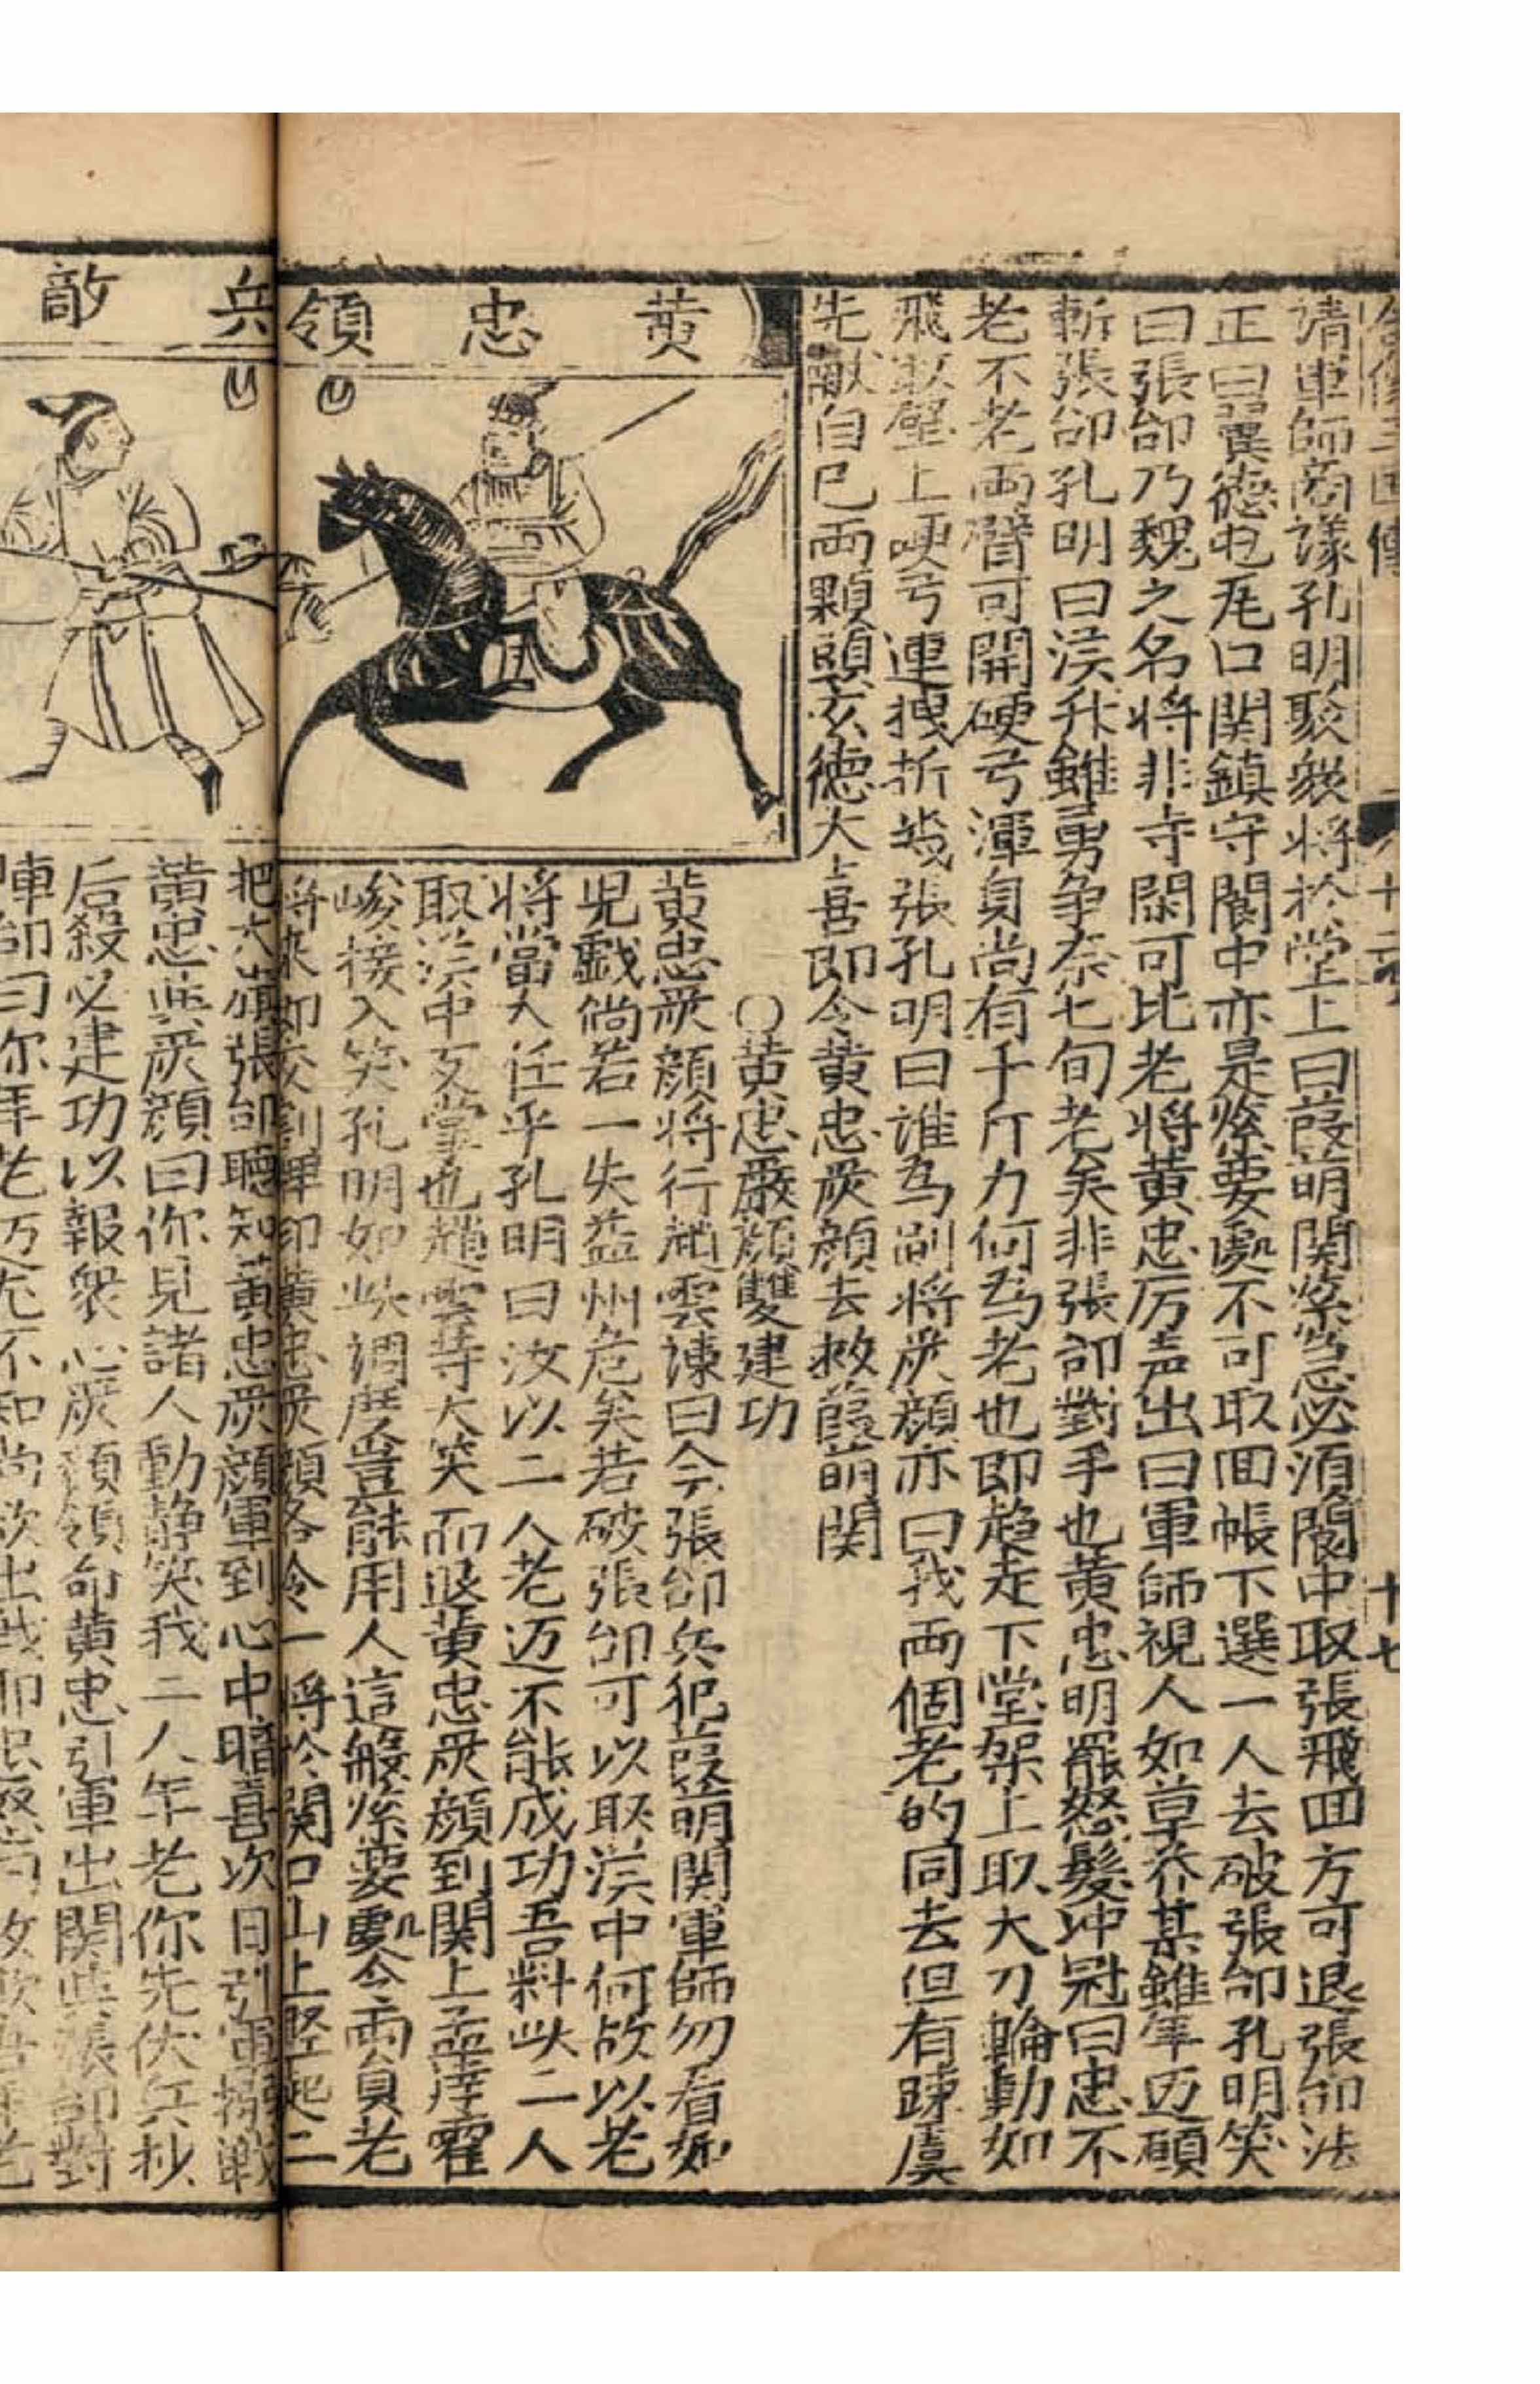 十七
請軍師商議孔明聚衆將於堂上曰葭萌関緊急必須閬中取張飛囬方可退張郃法
正曰翼德屯瓦口関鎮守閬中亦是緊要處不可取囬帳下選一人去破張郃孔明笑
曰張郃乃魏之名將非等閑可比老將黄忠厉声出曰軍師視人如草芥某雖年迈願
斬張郃孔明曰漢升雖勇争奈七旬老矣非張郃對手也黄忠明罷怒髮冲冠曰忠不
老不老両臂可開硬弓渾身尚有千斤力何為老也即趋走下堂架上取大刀輪動如
飛取壁上硬弓連拽折幾張孔明曰誰為副將嚴顔亦曰我両個老的同去但有踈虞
先献自己両顆頭玄德大喜即令黄忠嚴顔去救葭萌関
〇黄忠嚴顔雙建功
黄忠領
黄忠嚴顔將行趙雲諫曰今張郃兵犯葭萌関軍師勿看如
児戯倘若一失益州危矣若破張郃可以取漢中何故以老
將當大任乎孔明曰汝以二人老迈不能成功吾料此二人
取漢中反掌也趙雲等大笑而退黄忠嚴顔到関上孟達霍
峻接入笑孔明如此調度豈能用人這般緊要處令両員老
將來即交割牌印黄忠嚴顔各令一將於関口山上竪起二
兵敵
把大旗張郃聽知黄忠嚴顔軍到心中暗喜次日引軍搦戦
黄忠與嚴顔曰你見諸人動静笑我二人年老你先伏兵抄
后殺必建功以報衆心嚴顔領命黄忠引軍出関與張郃對
陣郃曰你年老迈尤不知尚欲出戦